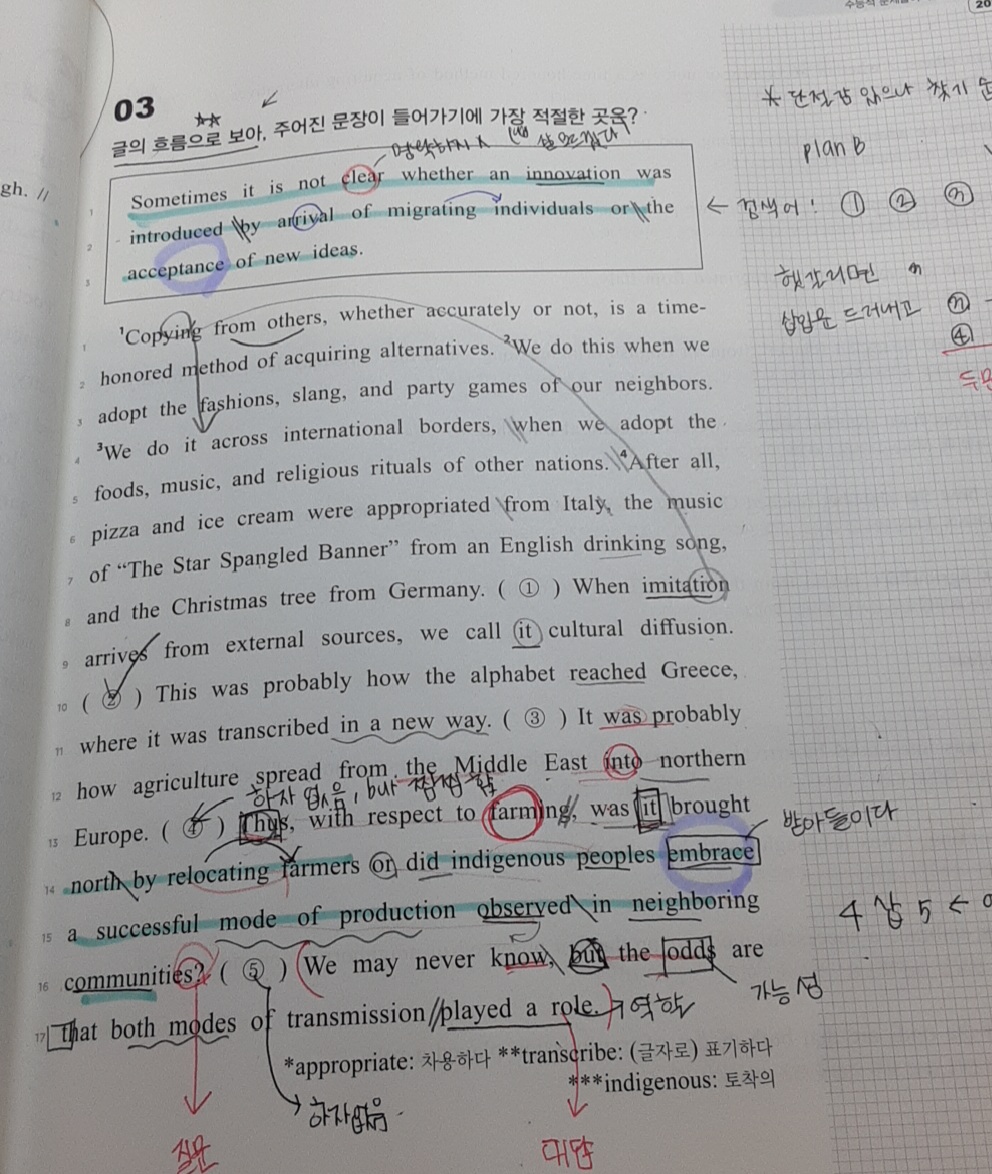 03
글의 흐름으로 보아, 주어진 문장이 들어가기에 가장 적절한 곳은?
명확하지 X
Sometimes it is not clear whether an innovation was
introduced by arrival of migrating individuals or the
acceptance of new ideas.
¹Copying from others, whether accurately or not, is a time-
honored method of acquiring alternatives. ²We do this when we
adopt the fashions, slang, and party games of our neighbors.
³We do it across international borders, when we adopt the
foods, music, and religious rituals of other nations. ⁴After all,
pizza and ice cream were appropriated from Italy, the music
of “The Star Spangled Banner” from an English drinking song,
and the Christmas tree from Germany. ( ① ) When imitation
arrives from external sources, we call it cultural diffusion.
( ② ) This was probably how the alphabet reached Greece,
where it was transcribed in a new way. ( ③ ) It was probably
how agriculture spread from the Middle East into northern
하자 없음, but
Europe. ( ④ ) Thus, with respect to farming, was it brought
north by relocating farmers or did indigenous peoples embrace
받아들이다
a successful mode of production observed in neighboring
communities? ( ⑤ ) We may never know, but the odds are
가능성
that both modes of transmission played a role.
역할
*appropriate: 차용하다 **transcribe: (글자로) 표기하다
***indigenous: 토착의
하자없음
질문
대답
gh. //
plan B
① ② ③
헷갈리면
삽입문 드러내고
③
④
4 삽 5 ←
20